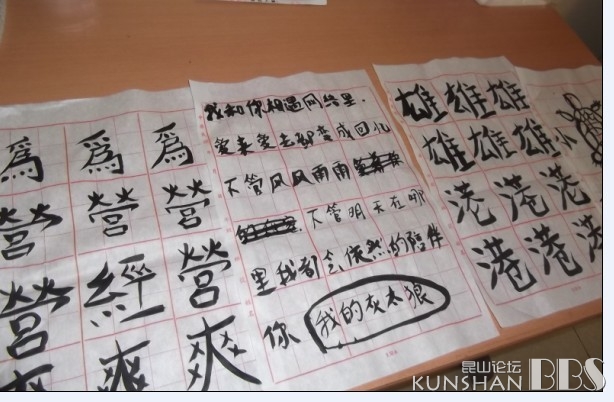 爲 爲 爲
營 營 營
營 經 營
爽 爽 爽
我和你相遇网络里.
爱来爱去都变成回忆
不管风风雨雨
不管明天在哪
里我都会依然的陪伴
你 我的灰太狼
雄 雄 雄
雄 雄 雄
港 港 港
港 港 港
小
昆山论坛
KUNSHAN BBS